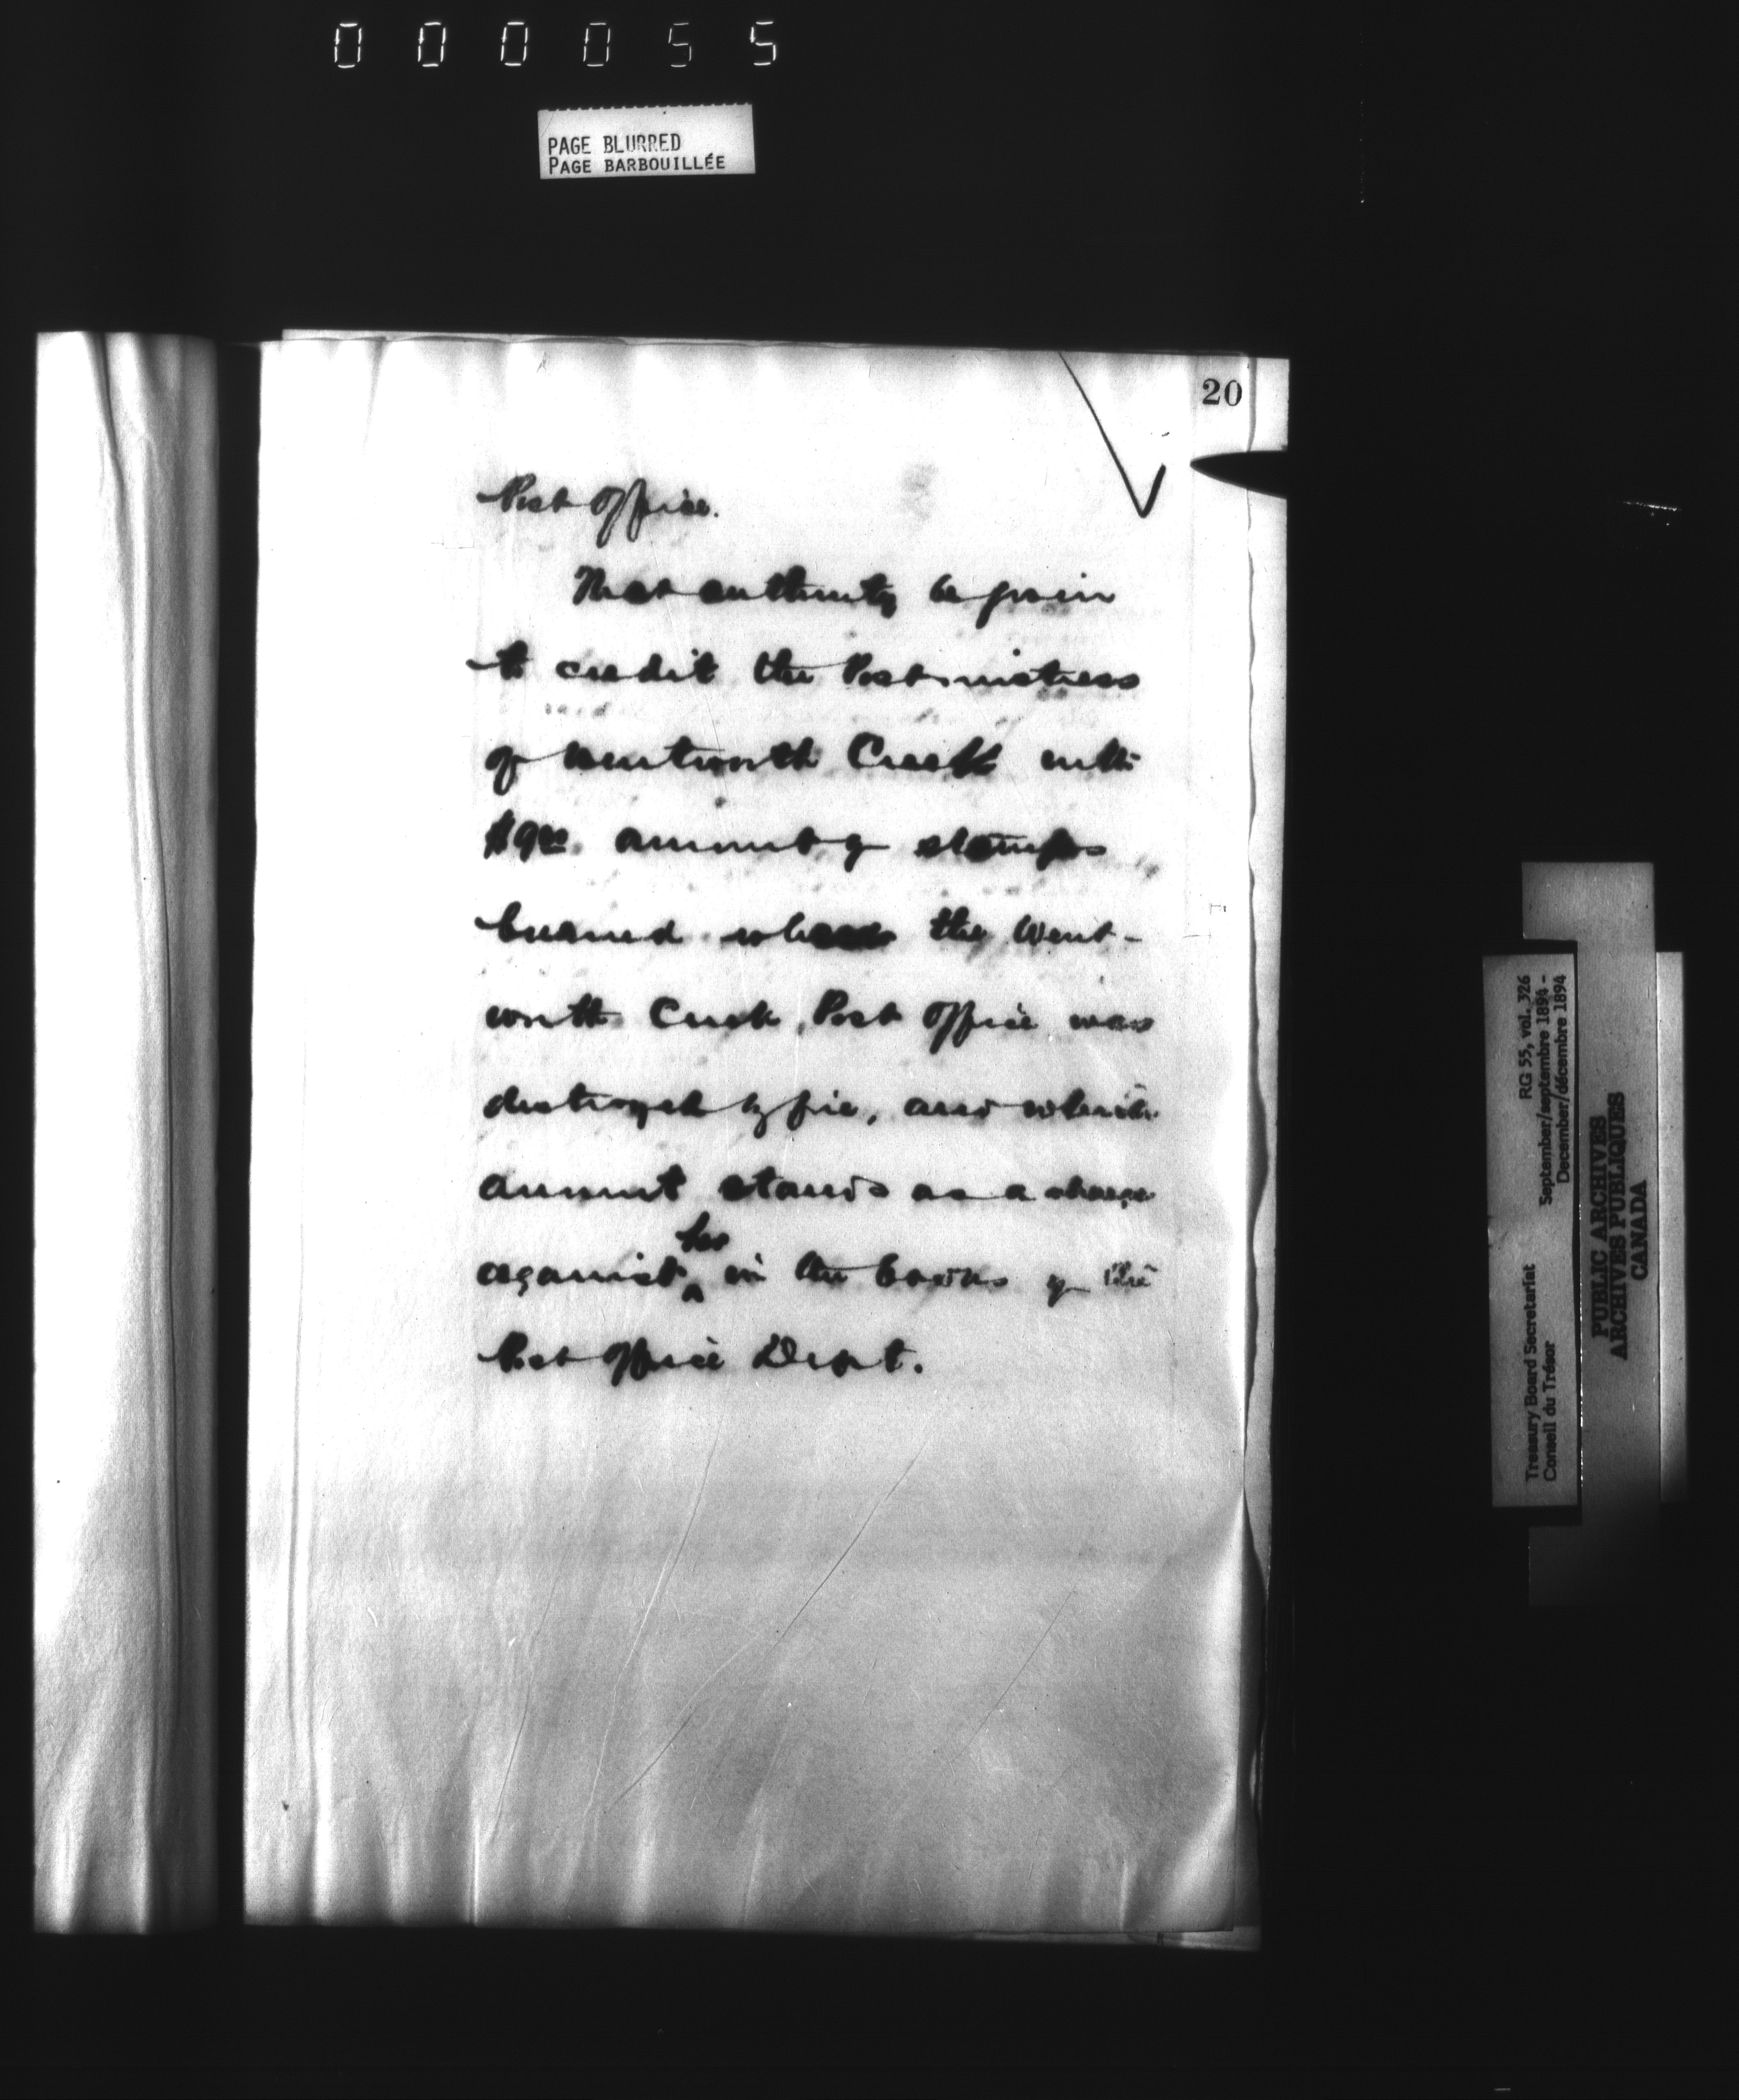 000055
PAGE BLURRED
PAGE BARBOUILLÉE
20
Post Office.
That authority be given
to credit the Postmistress
of Wentworth Creek with
$9.00 amount of stamps
burned when the Went-
worth Creek Post Office was
destroyed by fire, and which
amount stands as a charge
against her in the books of the
Post Office Dept.
Treasury Board Secretariat RG 55, vol. 326
Conseil du Trésor September/septembre 1894 -
December/décembre 1894
PUBLIC ARCHIVES
ARCHIVES PUBLIQUES
CANADA